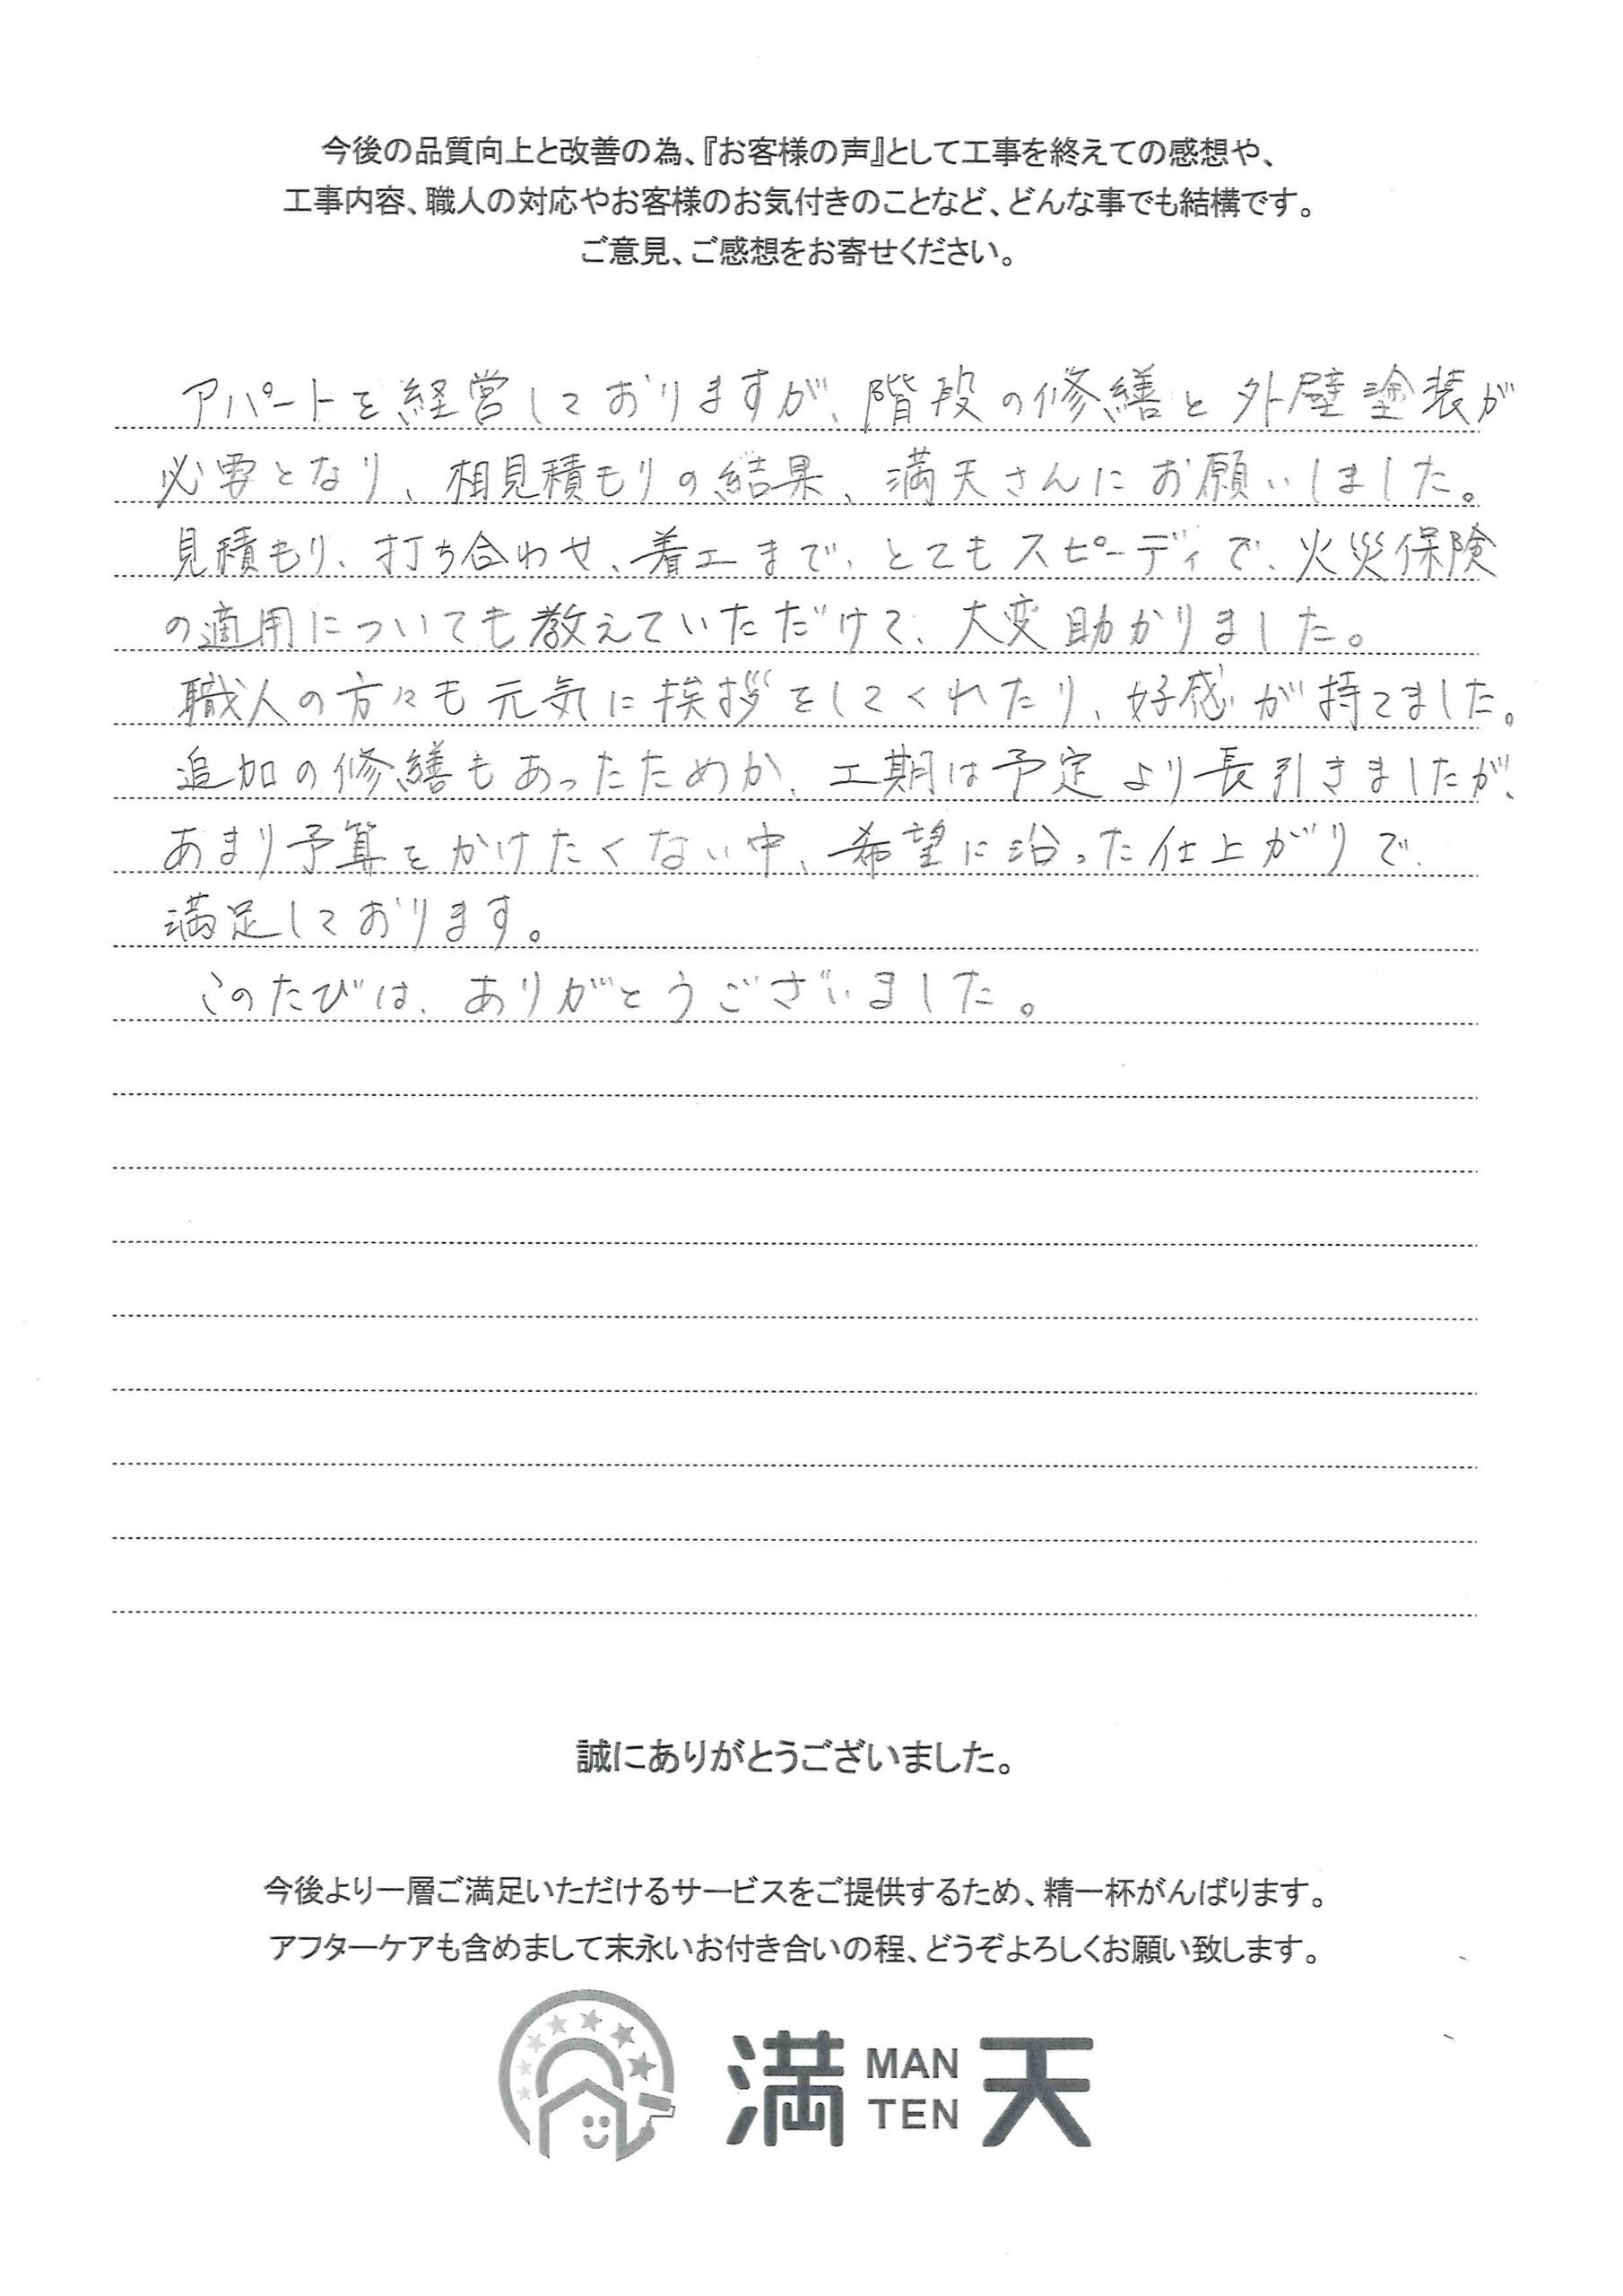 今後の品質向上と改善の為、『お客様の声』として工事を終えての感想や、
工事内容、職人の対応やお客様のお気付きのことなど、どんな事でも結構です。
ご意見、ご感想をお寄せください。
アパートを経営しておりますが、階段の修繕と外壁塗装が
必要となり、相見積もりの結果、満天さんにお願いしました。
見積もり、打ち合わせ、着工まで、とてもスピーディで、火災保険
の適用についても教えていただけて、大変助かりました。
職人の方々も元気に挨拶をしてくれたり、好感が持てました。
追加の修繕もあったためか、工期は予定より長引きましたが、
あまり予算をかけたくない中、希望に沿った仕上がりで、
満足しております。
このたびは、ありがとうございました。
誠にありがとうございました。
今後より一層ご満足いただけるサービスをご提供するため、精一杯がんばります。
アフターケアも含めまして末永いお付き合いの程、どうぞよろしくお願い致します。
満 MAN TEN 天